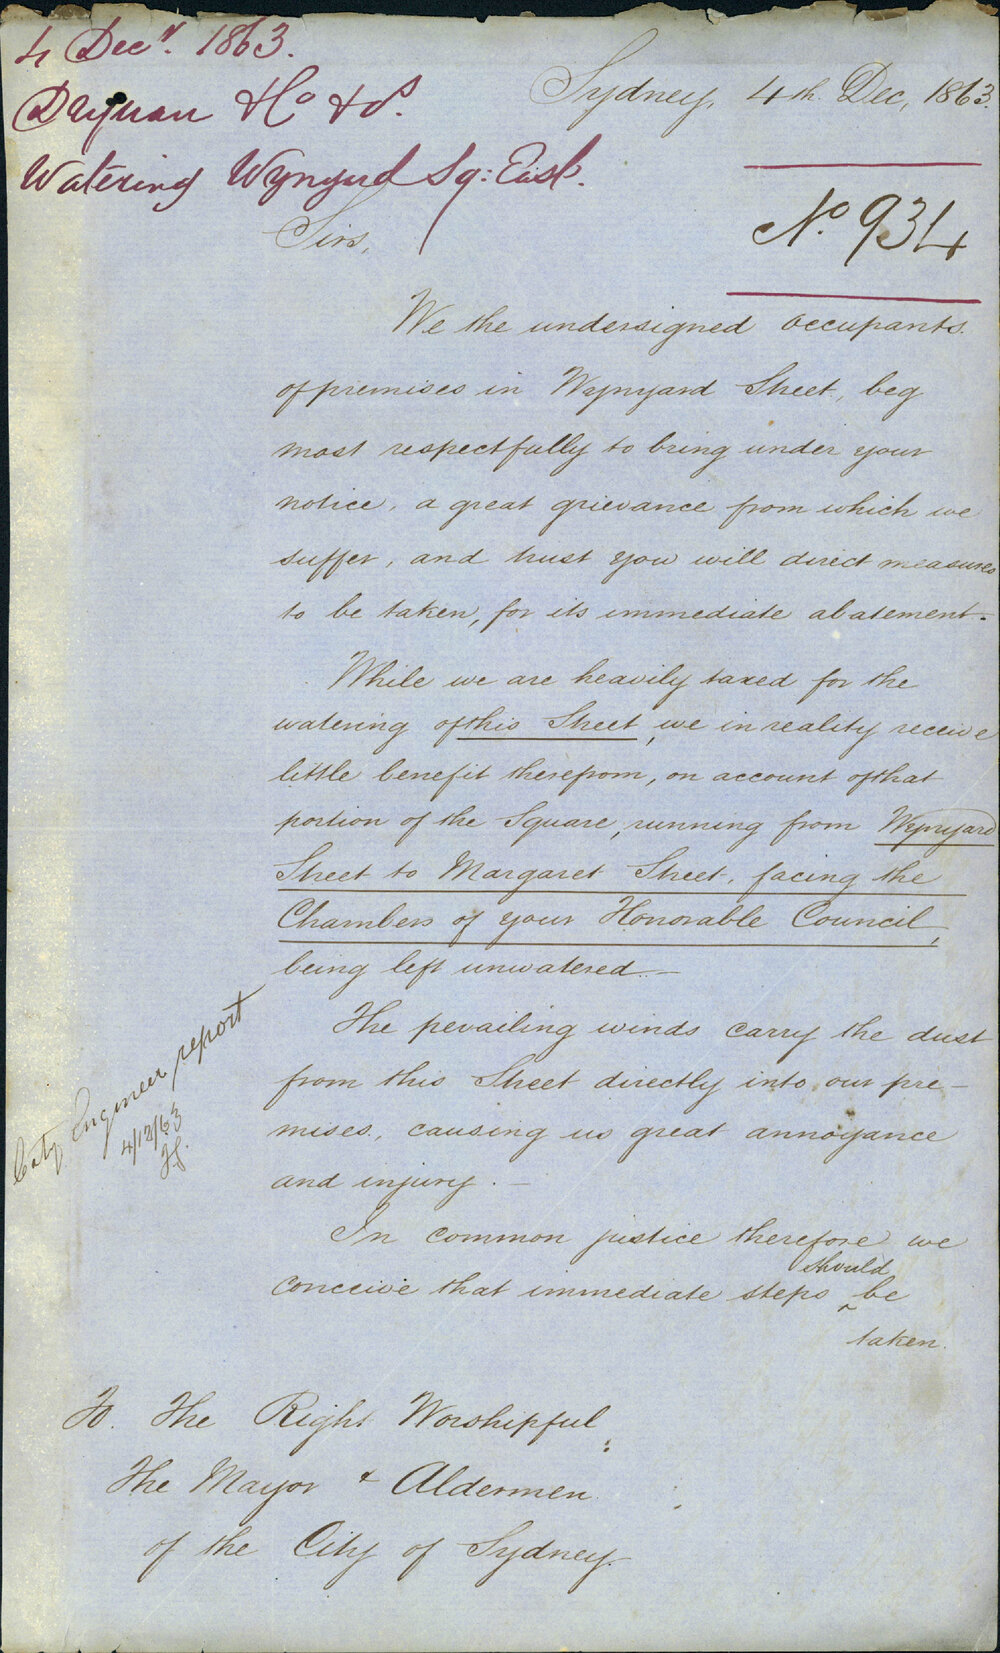 4 Decr. 1863.
& Co & ors.
Watering Wynyard Sq: East.
Sydney, 4th. Dec, 1863.
No. 934
Sirs,
We the undersigned occupants
of premises in Wynyard Street, beg
most respectfully to bring under your
notice, a great grievance from which we
suffer, and trust you will direct measures
to be taken, for its immediate abatement.
While we are heavily taxed for the
watering of this Street, we in reality receive
little benefit therefrom, on account of that
portion of the Square, running from Wynyard
Street to Margaret Street, facing the
Chambers of your Honorable Council,
being left unwatered. —
The pevailing winds carry the dust
from this Street directly into our pre-
mises, causing us great annoyance
and injury. —
In common justice therefore we
conceive that immediate steps should be
taken.
City Engineer report
4/12/63
To. The Right Worshipful
The Mayor & Aldermen
of the City of Sydney.